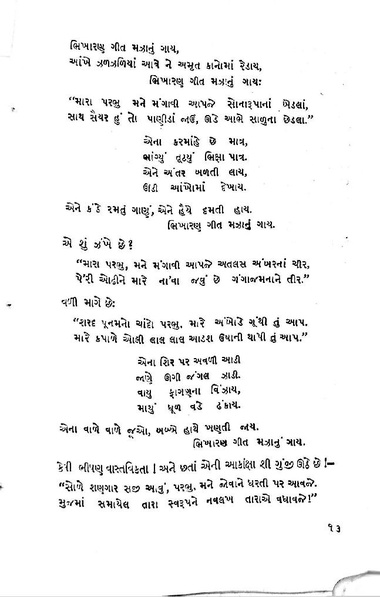 ભિખારણ ગીત મઝાનું ગાય,
આંખે ઝળઝળિયાં આવે ને અમૃત કાનોમાં રેડાય,
ભિખારણ ગીત મઝાનું ગાય:
“મારા પરભુ મને મંગાવી આપજે સોનારૂપાનાં બેડલાં,
સાથ સૈયર હું તો પાણીડાં જાઉં, ઊડે આભે સાળુના છેડલા.”
એના કરમાંહે છે માત્ર,
ભાંગ્યું તૂટ્યું ભિક્ષા પાત્ર.
એને અંતર બળતી લાય,
ઊંડી આંખોમાં દેખાય.
એને કંઠે રમતું ગાણું, એને હૈયે દમતી હાય.
ભિખારણ ગીત મઝાનું ગાય.
એ શું ઝંખે છે?
“મારા પરભુ, મને મંગાવી આપજે અતલસ અંબરનાં ચીર,
પે'રી ઓઢીને મારે ના'વા જવું છે ગંગાજમનાને તીર.”
વળી માગે છે:
“શરદ પૂનમનો ચાંદો પરભુ, મારે અંબોડે ગૂંથી તું આપ.
મારે કપાળે ઓલી લાલ લાલ આડશ ઉષાની થાપી તું આપ.”
એના શિર પર અવળી આડી
જાણે ઊગી જંગલ ઝાડી.
વાયુ ફાગણના વિંઝાય,
માથું ધૂળ વડે ઢંકાય.
એના વાળે વાળે જૂઓ, બબ્બે હાથે ખણતી જાય.
ભિખારણ ગીત મઝાનું ગાય.
કેવી ભીષણ વાસ્તવિકતા! અને છતાં એની આકાંક્ષા શી ગુંજી ઊઠે છે!–
“સોળે શણગાર સજી આવું, પરભુ, મને જોવાને ધરતી પર આવજે.
મુજમાં સમાયેલ તારા સ્વરૂપને નવલખ તારાએ વધાવજે!”
૧૩